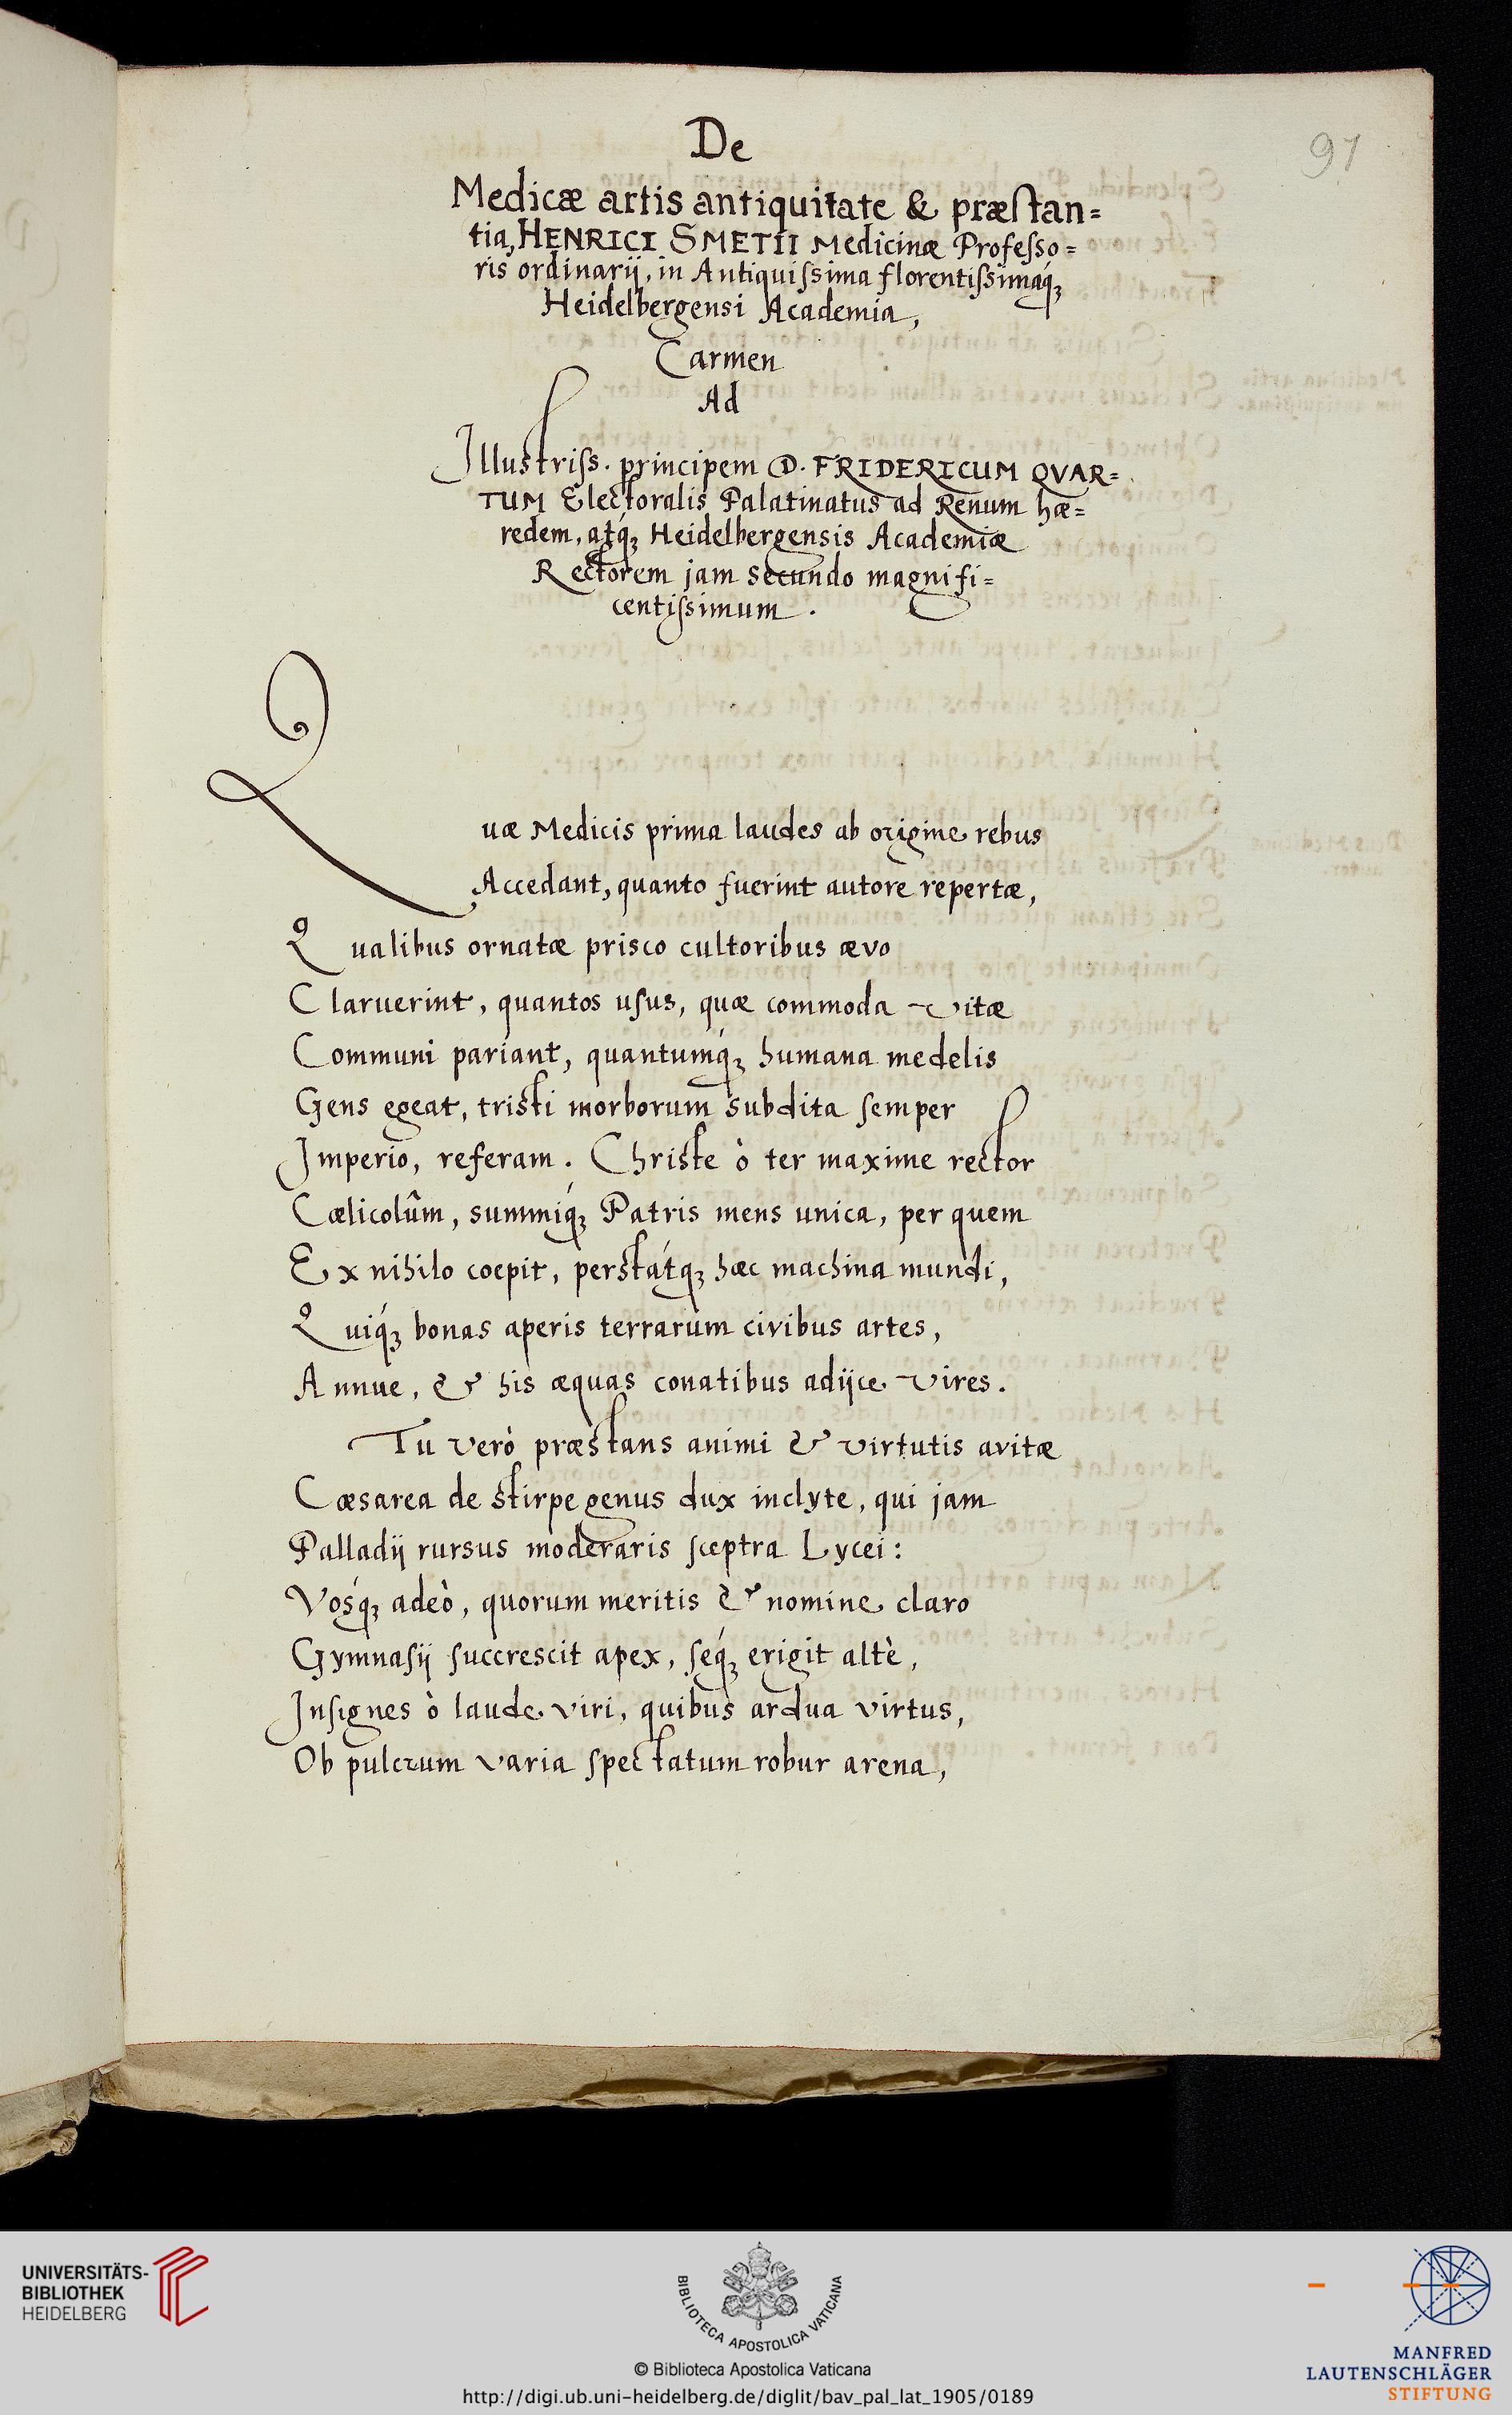 97
De
Medicæ artis antiquitate & præstan=
tia, HENRICI SMETII Medicinæ Professo=
ris ordinarij, in Antiquissima florentissimaq́ꝫ
Heidelbergensi Academia,
Carmen
Ad
Illustriss. principem D. FRIDERICUM QVAR=
TUM Electoralis Palatinatus ad Renum hæ=
redem, atq́ꝫ Heidelbergensis Academiæ
Rectorem jam secundo magnifi=
centissimum.
Quæ Medicis prima laudes ab origine rebus
Accedant, quanto fuerint autore repertæ,
Qualibus ornatæ prisco cultoribus ævo
Claruerint, quantos usus, quæ commoda vitæ
Communi pariant, quantumq́ꝫ humana medelis
Gens egeat, tristi morborum subdita semper
Imperio, referam. Christe ò ter maxime rector
Cælicolûm, summiq́ꝫ Patris mens unica, per quem
Ex nihilo coepit, perstátqꝫ hæc machina mundi,
Quiq́ꝫ bonas aperis terrarum civibus artes,
Annue, & his æquas conatibus adijce vires.
Tu verò præstans animi & virtutis avitæ
Cæsarea de stirpe genus dux inclyte, qui jam
Palladij rursus moderaris sceptra Lycei:
Vosq́ꝫ adeò, quorum meritis & nomine claro
Gymnasij succrescit apex, seq́ꝫ erigit altè,
Insignes ò laude viri, quibus ardua virtus,
Ob pulcrum varia spectatum robur arena,
UNIVERSITÄTS-
BIBLIOTHEK
HEIDELBERG
BIBLIOTECA APOSTOLICA VATICANA
© Biblioteca Apostolica Vaticana
http://digi.ub.uni-heidelberg.de/diglit/bav_pal_lat_1905/0189
MANFRED
LAUTENSCHLÄGER
STIFTUNG